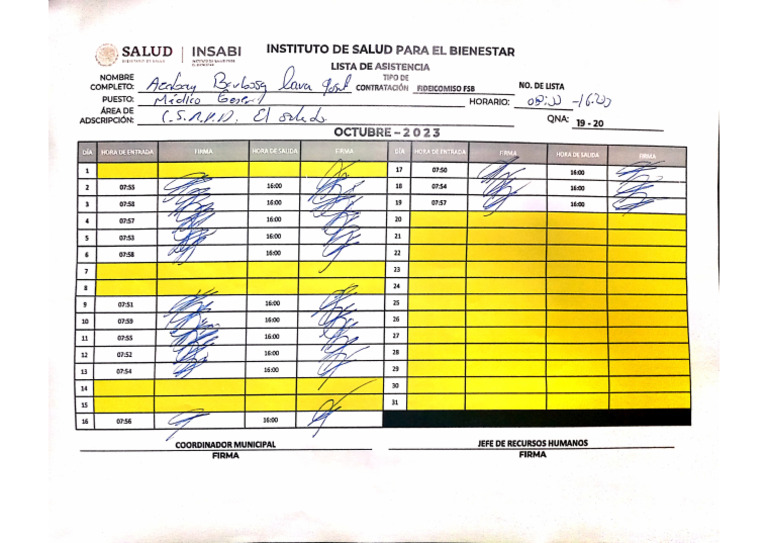 SALUD INSABI INSTITUTO DE SALUD PARA EL BIENESTAR
SECRETARÍA DE SALUD INSTITUTO DE SALUD PARA EL BIENESTAR
LISTA DE ASISTENCIA
NOMBRE COMPLETO: TIPO DE CONTRATACIÓN FIDEICOMISO FSB NO. DE LISTA
PUESTO: Médico General HORARIO: 08:00 - 16:00
ÁREA DE ADSCRIPCIÓN: QNA: 19 - 20
OCTUBRE - 2023
DÍA HORA DE ENTRADA FIRMA HORA DE SALIDA FIRMA DÍA HORA DE ENTRADA FIRMA HORA DE SALIDA FIRMA
1 17 07:50 16:00
2 07:55 16:00 18 07:54 16:00
3 07:58 16:00 19 07:57 16:00
4 07:57 16:00 20
5 07:53 16:00 21
6 07:58 16:00 22
7 23
8 24
9 07:51 16:00 25
10 07:59 16:00 26
11 07:55 16:00 27
12 07:52 16:00 28
13 07:54 16:00 29
14 30
15 31
16 07:56 16:00
COORDINADOR MUNICIPAL JEFE DE RECURSOS HUMANOS
FIRMA FIRMA